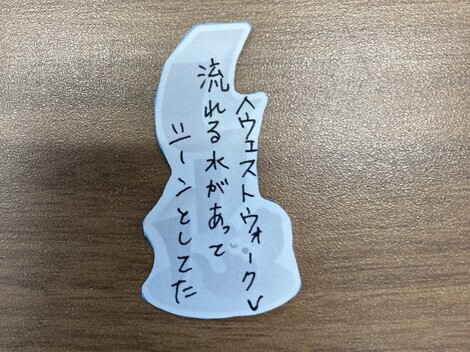 〈ウェストウォーク〉
流れる水があって
シーンとしてた